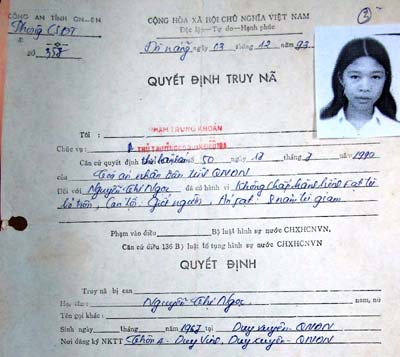 CÔNG AN TỈNH QN-ĐN
Phòng CSĐT
Số 358
CỘNG HÒA XÃ HỘI CHỦ NGHĨA VIỆT NAM
Độc lập — Tự do — Hạnh phúc
Đà nẵng ngày 03 tháng 12 năm 93
3
QUYẾT ĐỊNH TRUY NÃ
Tôi : PHẠM TRUNG KHOÁN
Chức vụ : THỦ TRƯỞNG
Căn cứ quyết định số 50 ngày 13 tháng 3 năm 1990
của Tòa án nhân dân QNĐN
Đối với Nguyễn Thị Ngọc đã có hành vi Không chấp hành
bỏ trốn, Can tội: Giết người. Án phạt 8 năm tù giam
Phạm vào điều Bộ luật hình sự nước CHXHCNVN,
Căn cứ điều 136 B) luật tố tụng hình sự nước CHXHCNVN.
QUYẾT ĐỊNH
Truy nã bị can
Họ tên: Nguyễn Thị Ngọc nam, nữ
Tên gọi khác:
Sinh ngày tháng năm 1967 tại Duy Xuyên - QNĐN
Nơi đăng ký NKTT Thôn 4 - Duy Vinh, Duy Xuyên - QNĐN